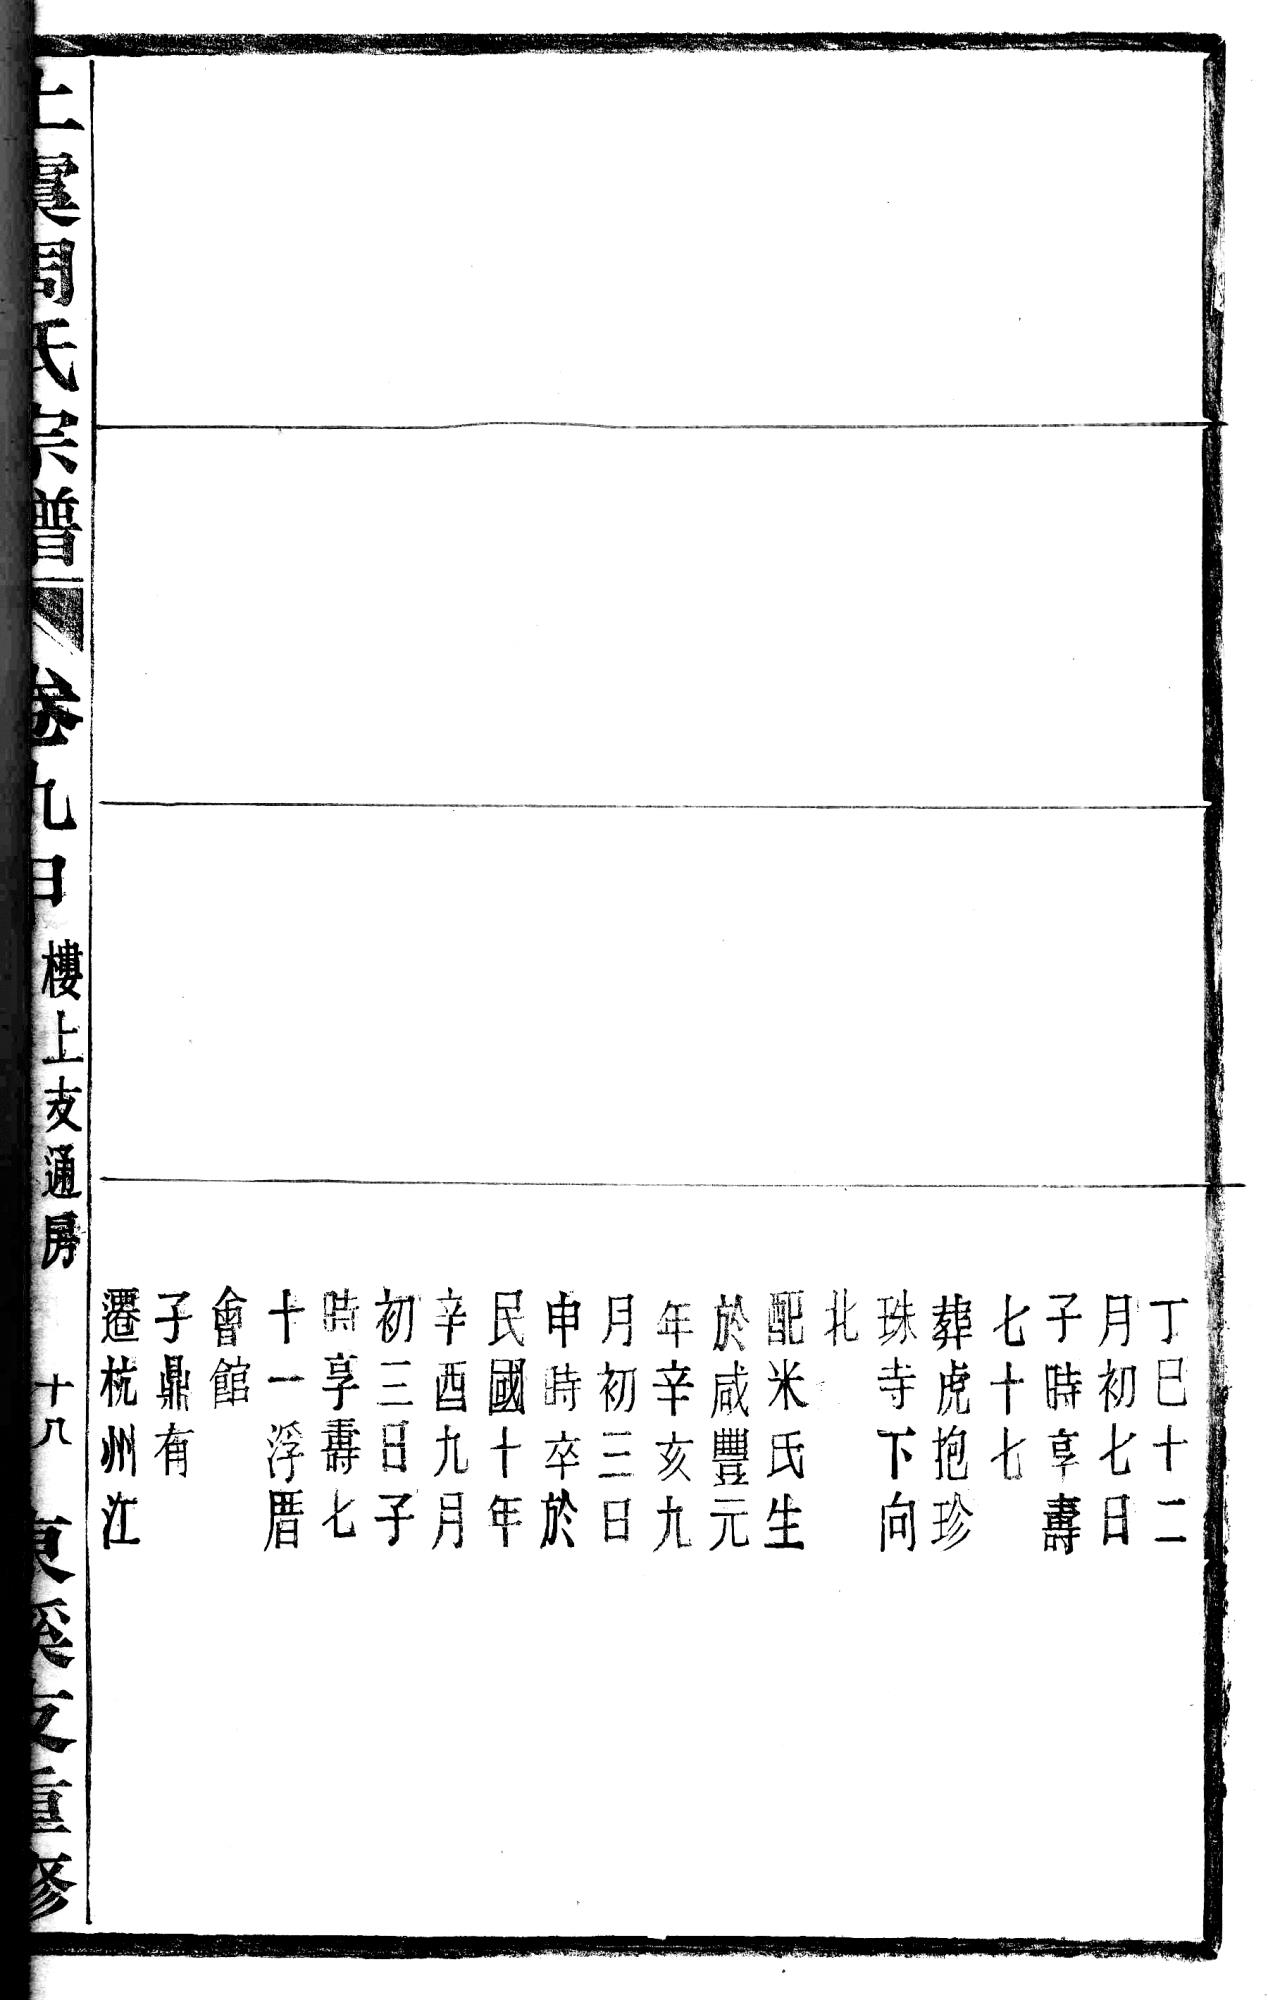 丁巳十二
月初七日
子時享壽
七十七
葬虎抱珍
珠寺下向
北
配米氏生
於咸豐元
年辛亥九
月初三日
申時卒於
民國十年
辛酉九月
初三日子
時享壽七
十一浮厝
會館
子鼎有
遷杭州江
上虞周氏宗譜
卷九
樓上支通房
十八
東溪支重修